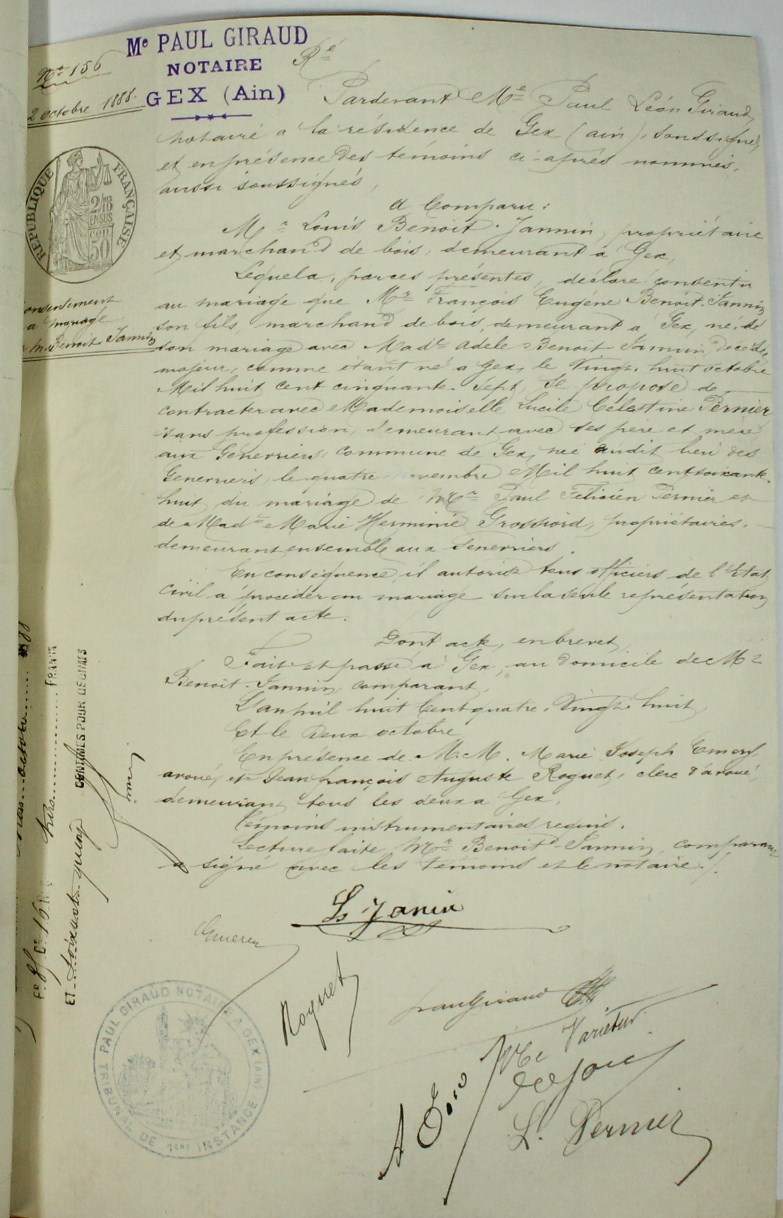 Nº 156
2 octobre 1888.
Mᵉ PAUL GIRAUD
NOTAIRE
GEX (Ain)
RÉPUBLIQUE FRANÇAISE
2/10 EN SUS
50ᶜ
Consentement
a mariage
Benoit Jannin
Pardevant Mᵉ Paul Léon Giraud,
notaire a la résidence de Gex (ain), soussigné,
et en présence des témoins ci-après nommés,
aussi soussignés,
a Comparu:
Mʳ Louis Benoit-Jannin, propriétaire
et marchand de bois, demeurant à Gex,
Lequel a, par ces présentes, déclaré consentir
au mariage que Mʳ François Eugène Benoit-Jannin
son fils, marchand de bois, demeurant a Gex, né de
son mariage avec Madᵉ Adèle Benoit Jannin, décédée,
majeur, comme étant né a Gex, le Vingt huit octobre
Mil huit cent cinquante-sept, Se propose de
contracter avec Mademoiselle Lucile Célestine Pernier
sans profession, demeurant avec ses père et mère
aux Generriers, commune de Gex, née audit lieu des
Generriers, le quatre Mil huit cent soixante
huit, du mariage de Mʳ Paul Felicien Pernier et
de Madᵉ Marie Herminie Grossiord, propriétaires,
demeurant ensemble aux Generriers.
En conséquence, il autorise tous officiers de l'Etat
civil a procéder au mariage sur la seule représentation
du présent acte.
Dont acte, en brevet,
Fait et passé a Gex, au domicile de Mʳ
Benoit-Jannin, comparant,
L'an mil huit Cent quatre-Vingt-huit,
Et le Deux octobre
En présence de M.M. Marie Joseph Emery
avoué, et Jean François Auguste Roguet, clerc d'avoué,
demeurant tous les deux a Gex,
Témoins instrumentaires requis.
Lecture faite, Mʳ Benoit-Jannin, comparant
a signé avec les témoins et le notaire.
Ls Janin
Roguet
Paul Giraud
Ne Varietur
L. Pernier
PAUL GIRAUD NOTAIRE A GEX (AIN)
TRIBUNAL DE 1ère INSTANCE
CENTIMES POUR DÉCIMES